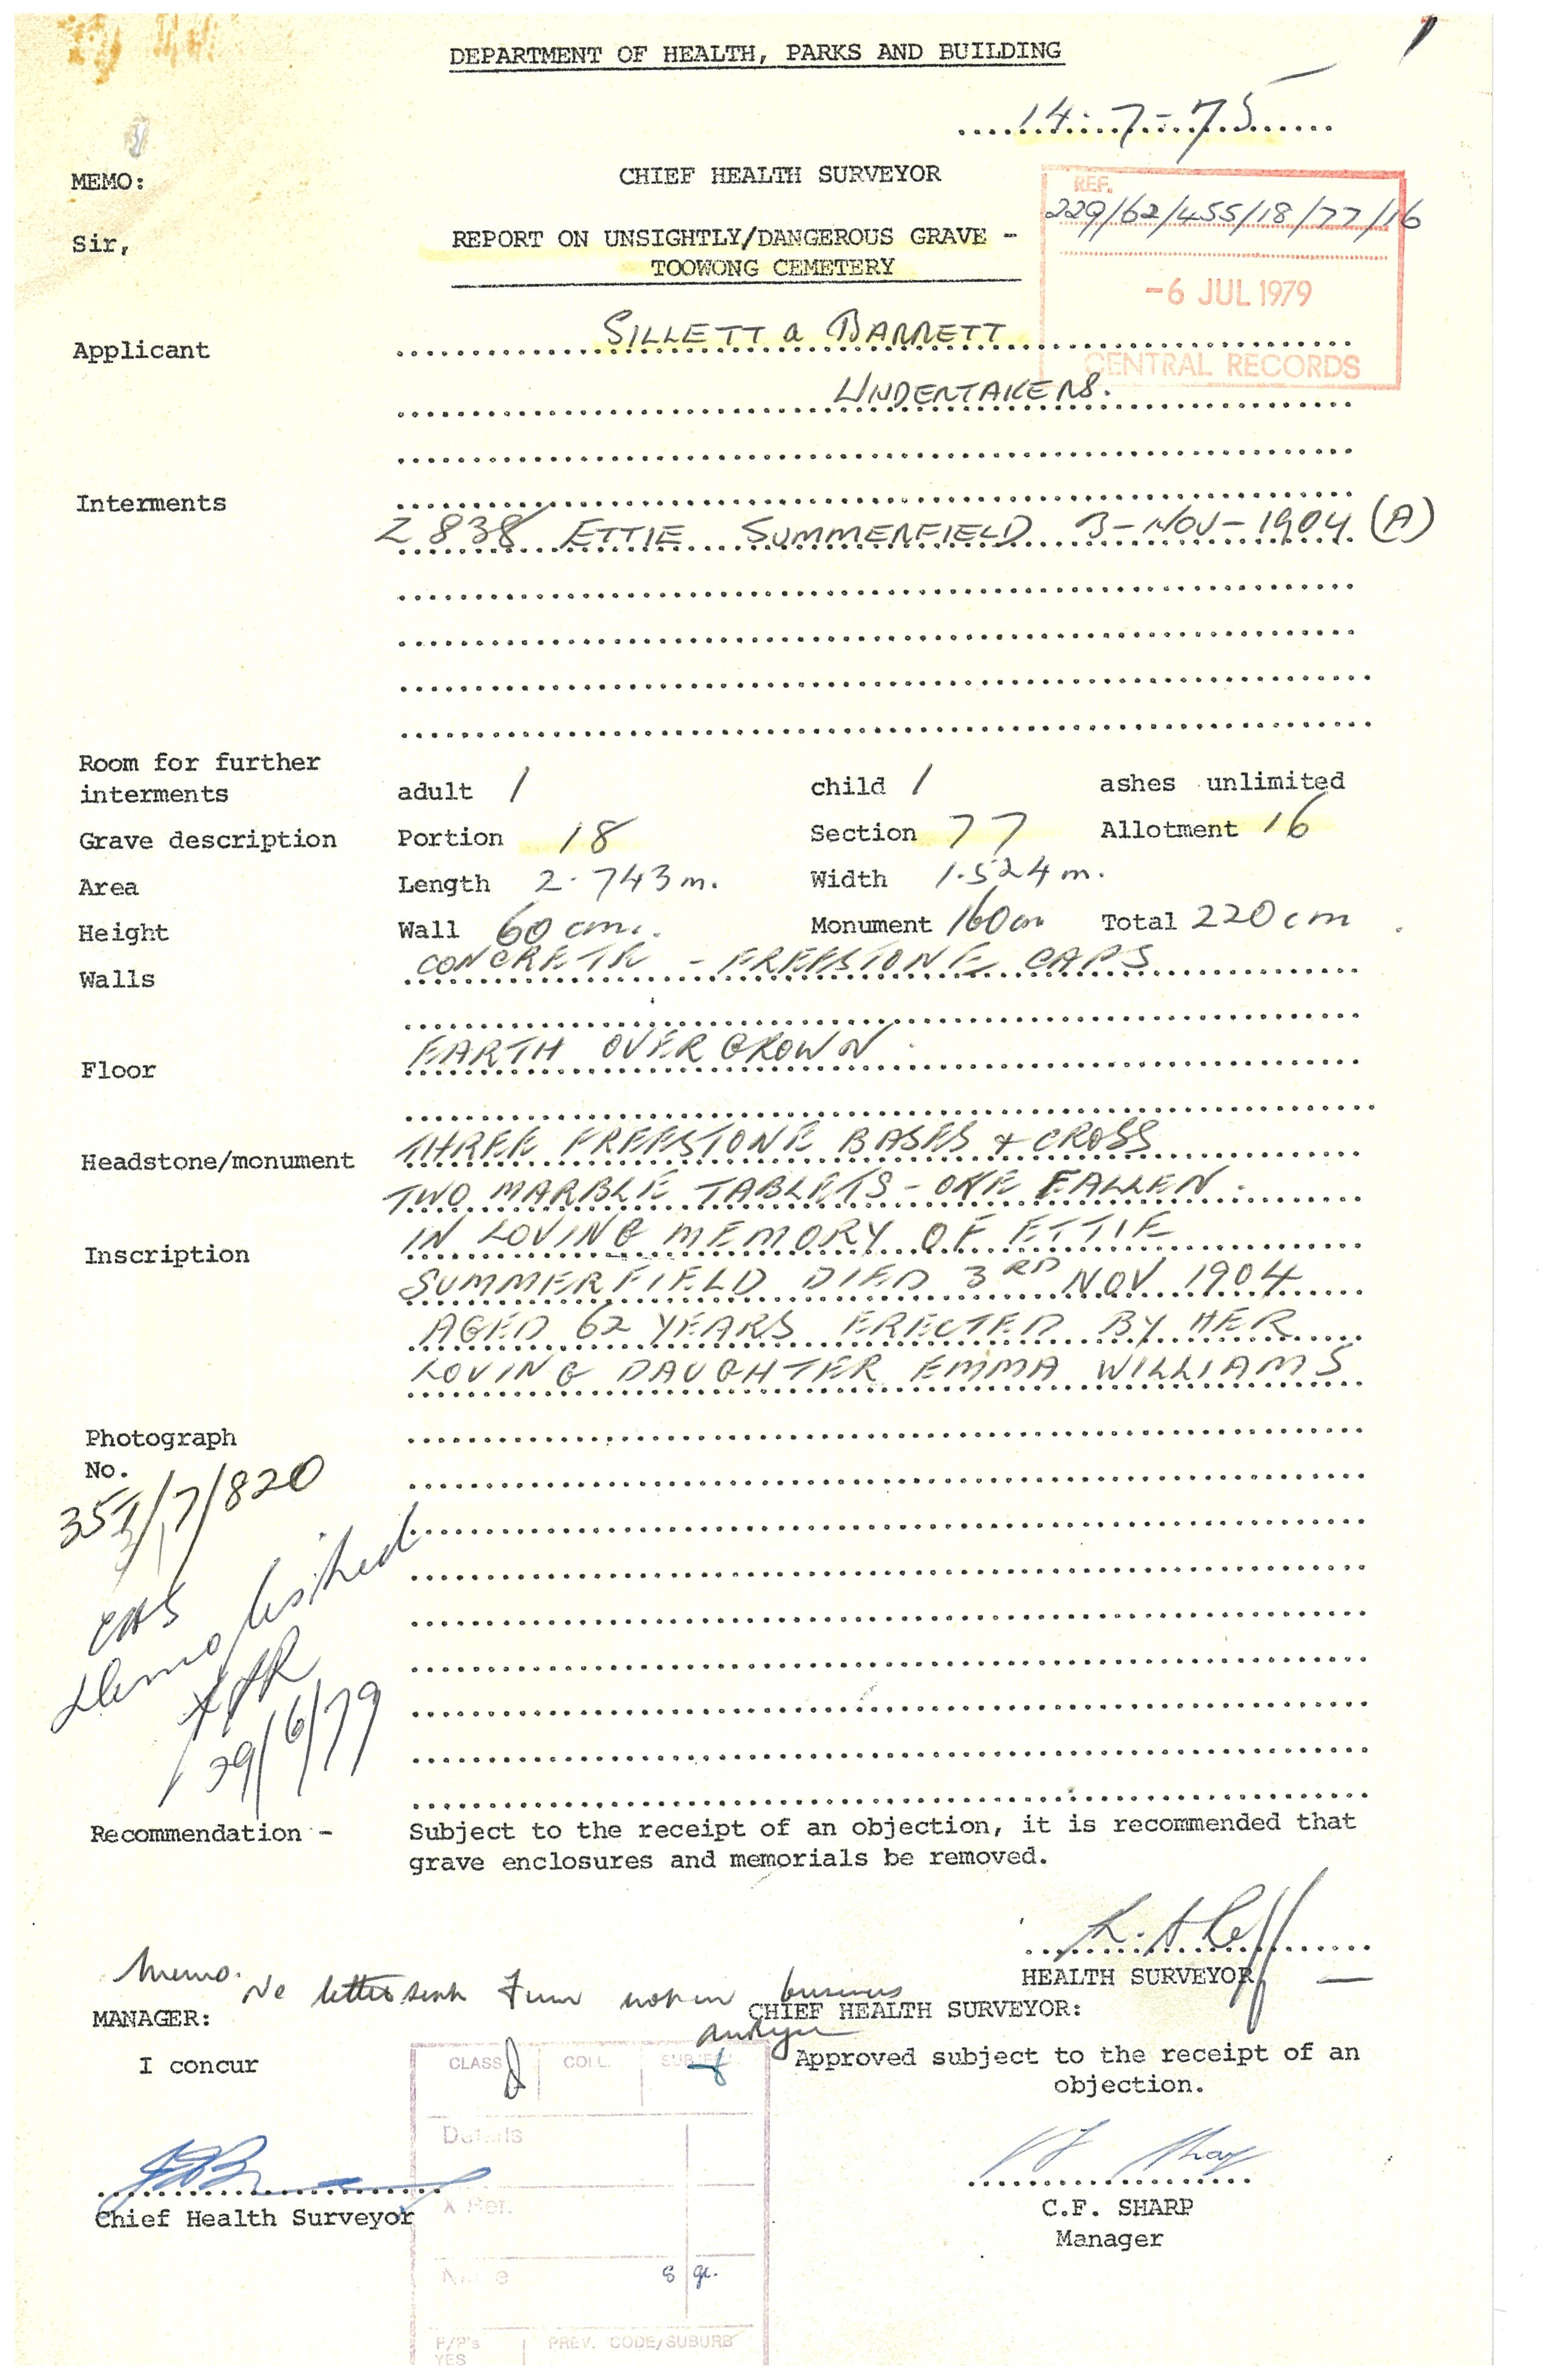 DEPARTMENT OF HEALTH, PARKS AND BUILDING
14-7-75
MEMO:
CHIEF HEALTH SURVEYOR
REF.
229/62/455/18/77/16
Sir,
REPORT ON UNSIGHTLY/DANGEROUS GRAVE -
TOOWONG CEMETERY
-6 JUL 1979
CENTRAL RECORDS
Applicant
SILLETT & BARRETT
UNDERTAKERS.
Interments
2838 ETTIE SUMMERFIELD 3-NOV-1904 (A)
Room for further
interments adult 1 child 1 ashes unlimited
Grave description Portion 18 Section 77 Allotment 16
Area Length 2.743 m. Width 1.524 m.
Height Wall 60 cm. Monument 160 cm Total 220 cm
Walls CONCRETE - FREESTONE CAPS
Floor EARTH OVERGROWN.
Headstone/monument THREE FREESTONE BASES & CROSS
TWO MARBLE TABLETS - ONE FALLEN.
Inscription IN LOVING MEMORY OF ETTIE
SUMMERFIELD DIED 3RD NOV 1904
AGED 62 YEARS ERECTED BY HER
LOVING DAUGHTER EMMA WILLIAMS
Photograph
No.
/7/820
CHS
Demolished
29/6/79
Recommendation - Subject to the receipt of an objection, it is recommended that
grave enclosures and memorials be removed.
HEALTH SURVEYOR
Memo. No letter sent Firm not in business
MANAGER:
CHIEF HEALTH SURVEYOR:
I concur
Approved subject to the receipt of an
objection.
CLASS COLL. SUBJECT
Details
X Ref.
Chief Health Surveyor
C.F. SHARP
Manager
Name
8 gr.
P/P's PREV. CODE/SUBURB
YES